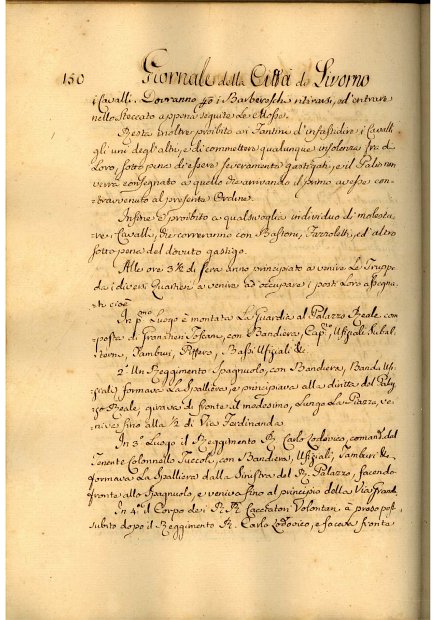 150 Giornale della Città di Livorno
i Cavalli. Dovranno però i Barbereschi ritirarsi, ed entrare
nello Steccato appena seguite le Mosse.
Resta inoltre proibito ai Fantini d'infastidire i Cavalli
gli uni degl'altri, e di commettere qualunque insolenza fra di
Loro, sotto pena di essere severamente gastigati, e il Palio non
verrà consegnato a quello che arrivando il primo avesse con-
travvenuto al presente Ordine.
Infine è proibito a qualsivoglia individuo di molesta-
re i Cavalli, che correranno con Bastoni, Fazzoletti, ed altro
sotto pena del dovuto gastigo.
Alle ore 3½ di sera anno principiato a venire le Truppe
da i diversi Quartieri a venire ad occupare i posti Loro assegna-
ti cioè
In pmo Luogo è montata La Guardia al Palazzo Reale com-
posta di Granatieri Toscani, con Bandiera, Capno, Ufiziali Subal-
terni, Tamburi, Pifferi, Bassi Ufiziali &c.
2° Un Reggimento Spagnuolo, con Bandiera, Banda Uf-
iziali formava La Spalliera, e principiava alla diritta del Palaz-
zo Reale, girava di fronte il medesimo, Lungo La Piazza, ve-
niva fino alla ½ di Via Ferdinanda
In 3° Luogo il Reggimento R. Carlo Lodovico, comandto dal
Tenente Colonnello Tuccoli, con Bandiera, Ufiziali, Tamburi &c
formava La Spalliera dalla Sinistra del R. Palazzo, facendo
fronte allo Spagnuolo, e veniva fino al principio della Via Grande
In 4° il Corpo dei R. R. Cacciatori Volontari è prose post
subito dopo il Reggimento R. Carlo Lodovico, e faceva fronte